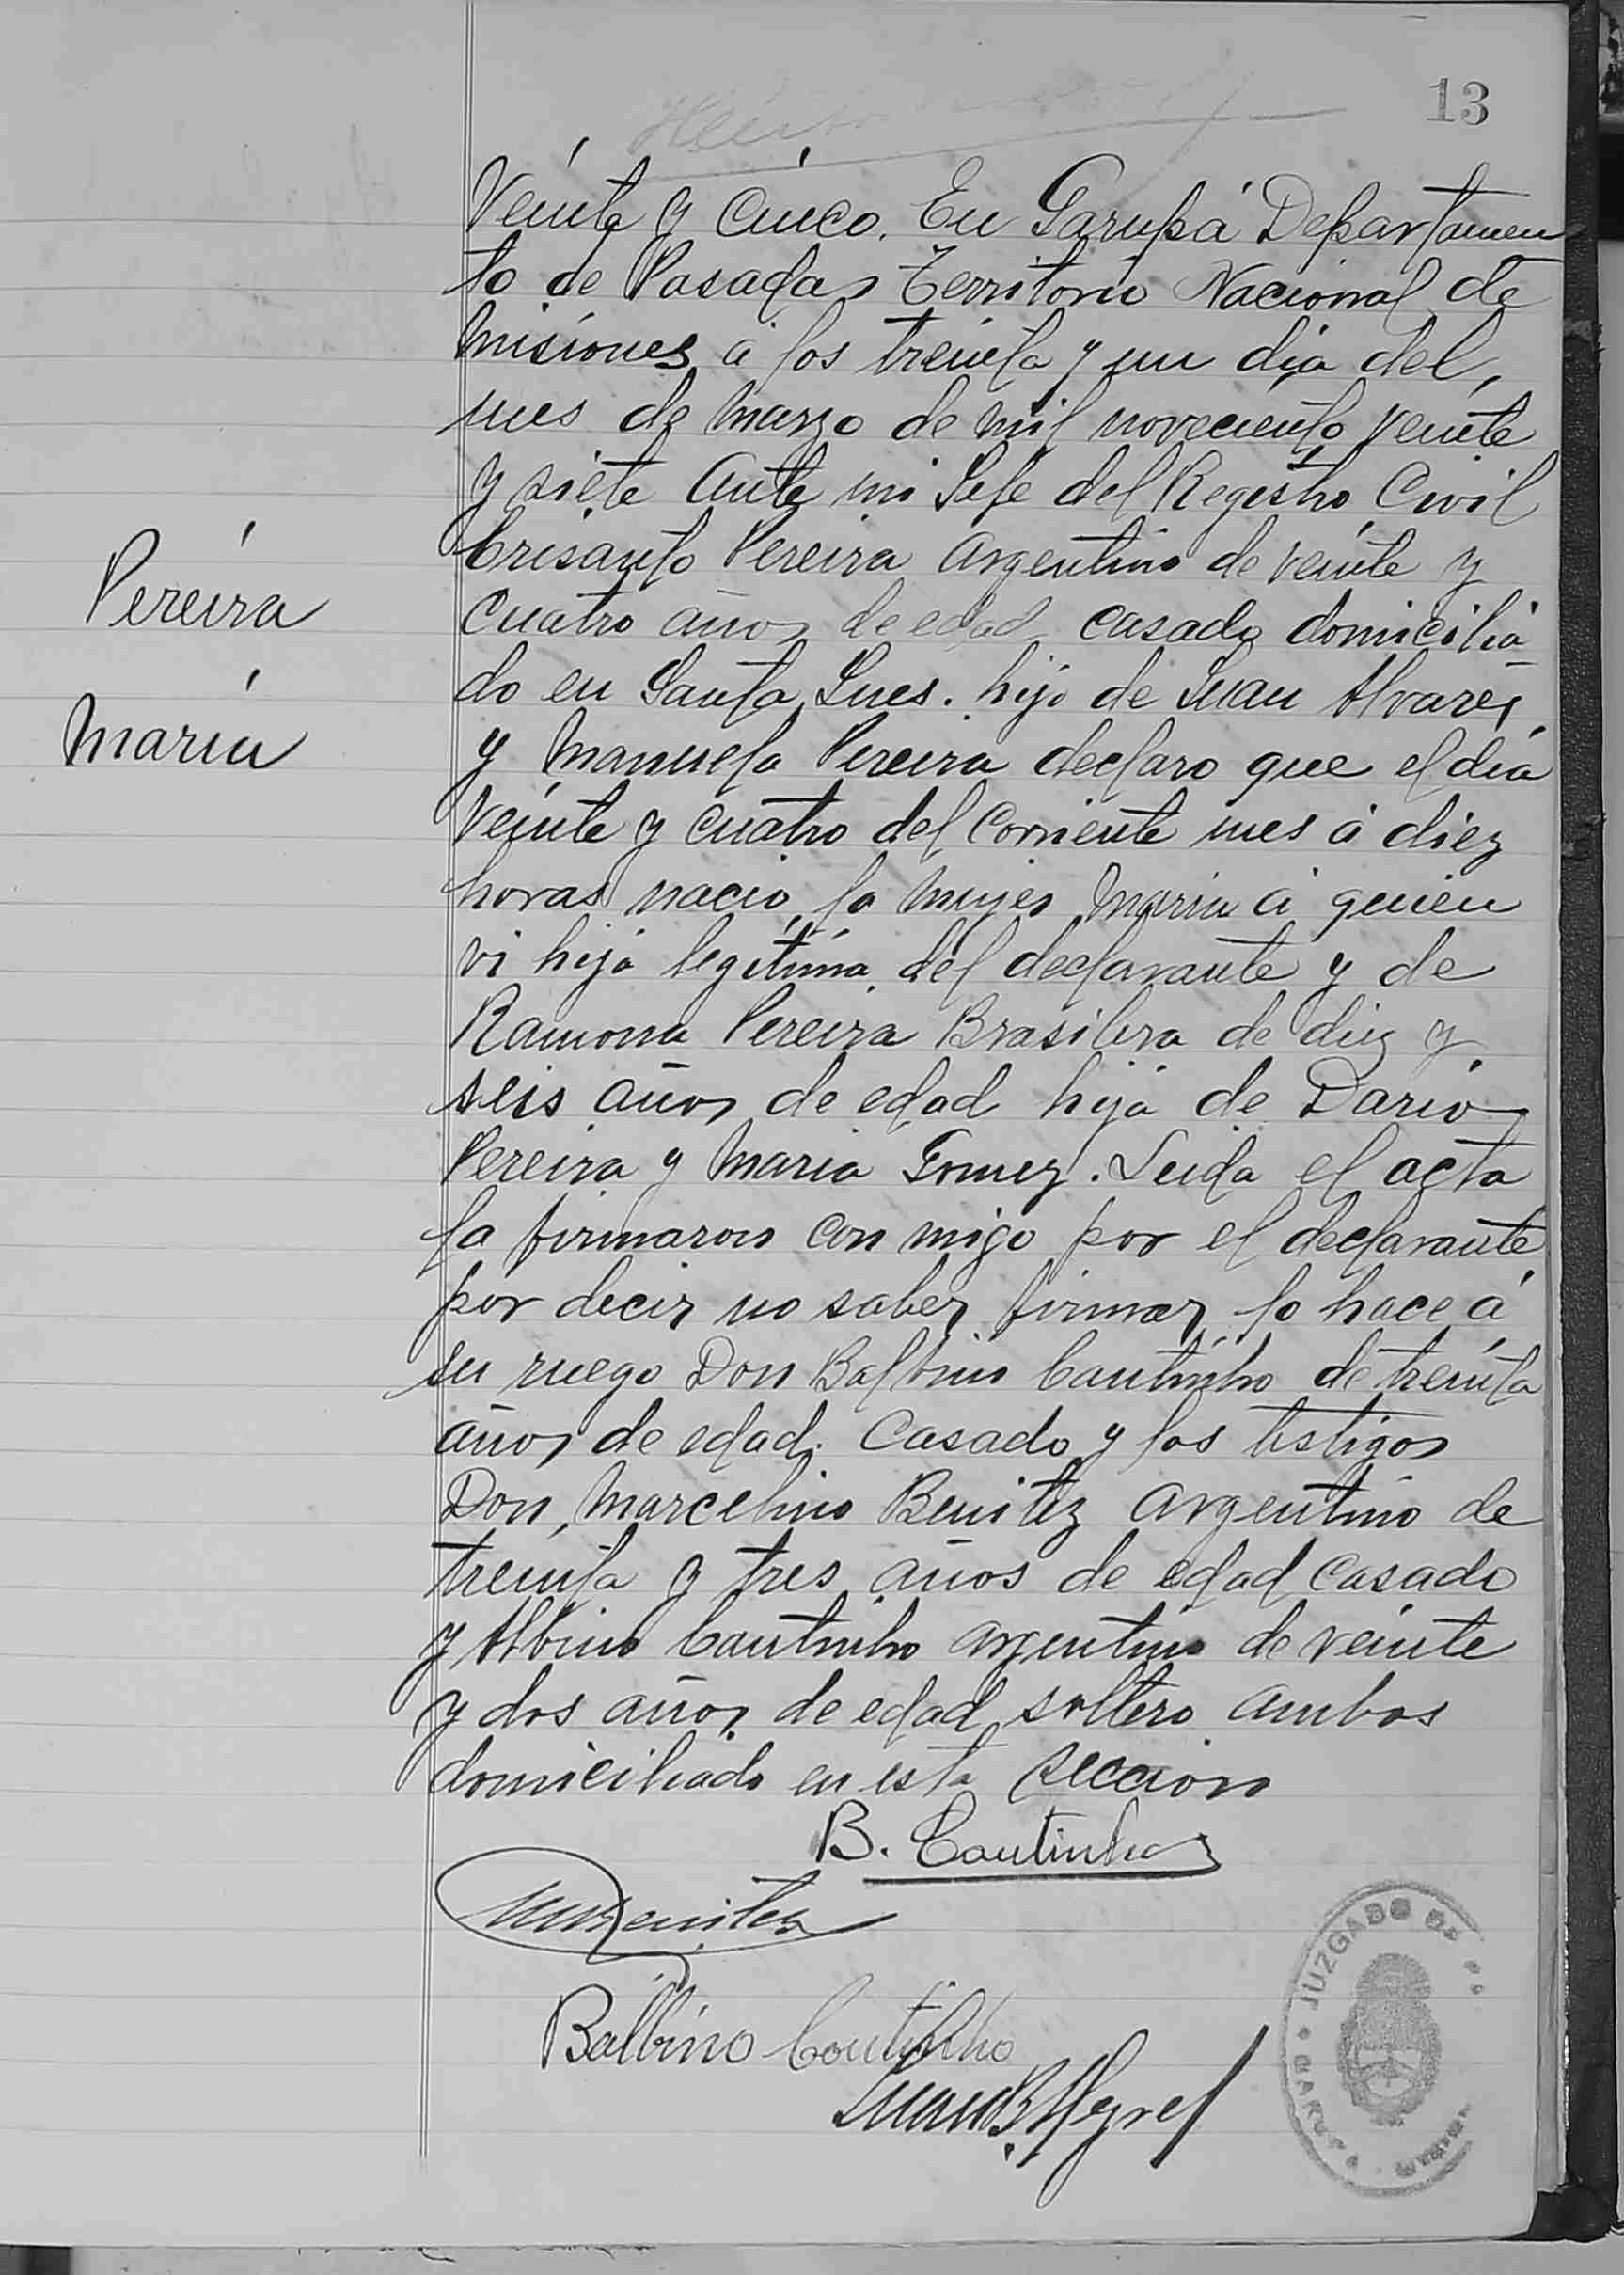 13
Veinte y Cinco. En Garupá Departamen
to de Posadas Territorio Nacional de
Misiones á los treinta y un dia del
mes de Marzo de mil noveciento veinte
y siete Ante mi Jefe del Registro Civil
Crisanto Pereira Argentino de veinte y
Cuatro años de edad casado domicilia
do en Santa Ines. hijo de Juan Alvarez
y Manuela Pereira declaro que el dia
Veinte y cuatro del Corriente mes á diez
horas nacio la mujer Maria á quien
vi hija legitima del declarante y de
Ramona Pereira Brasilera de diez y
seis años de edad hija de Dario
Pereira y Maria Gomez. Leida el acta
la firmaron con migo por el declarante
por decir no saber firmar lo hace á
su ruego Don Balbino Cautinho de treinta
años de edad. Casado y los testigos
Don Marcelino Benitez Argentino de
treinta y tres años de edad Casado
y Albino Cautinho argentino de veinte
y dos años de edad soltero ambos
domiciliado en esta seccion
Pereira
Maria
B. Cautinho
Benitez
Balbino Coutinho
JUZGADO DE
GARUPA